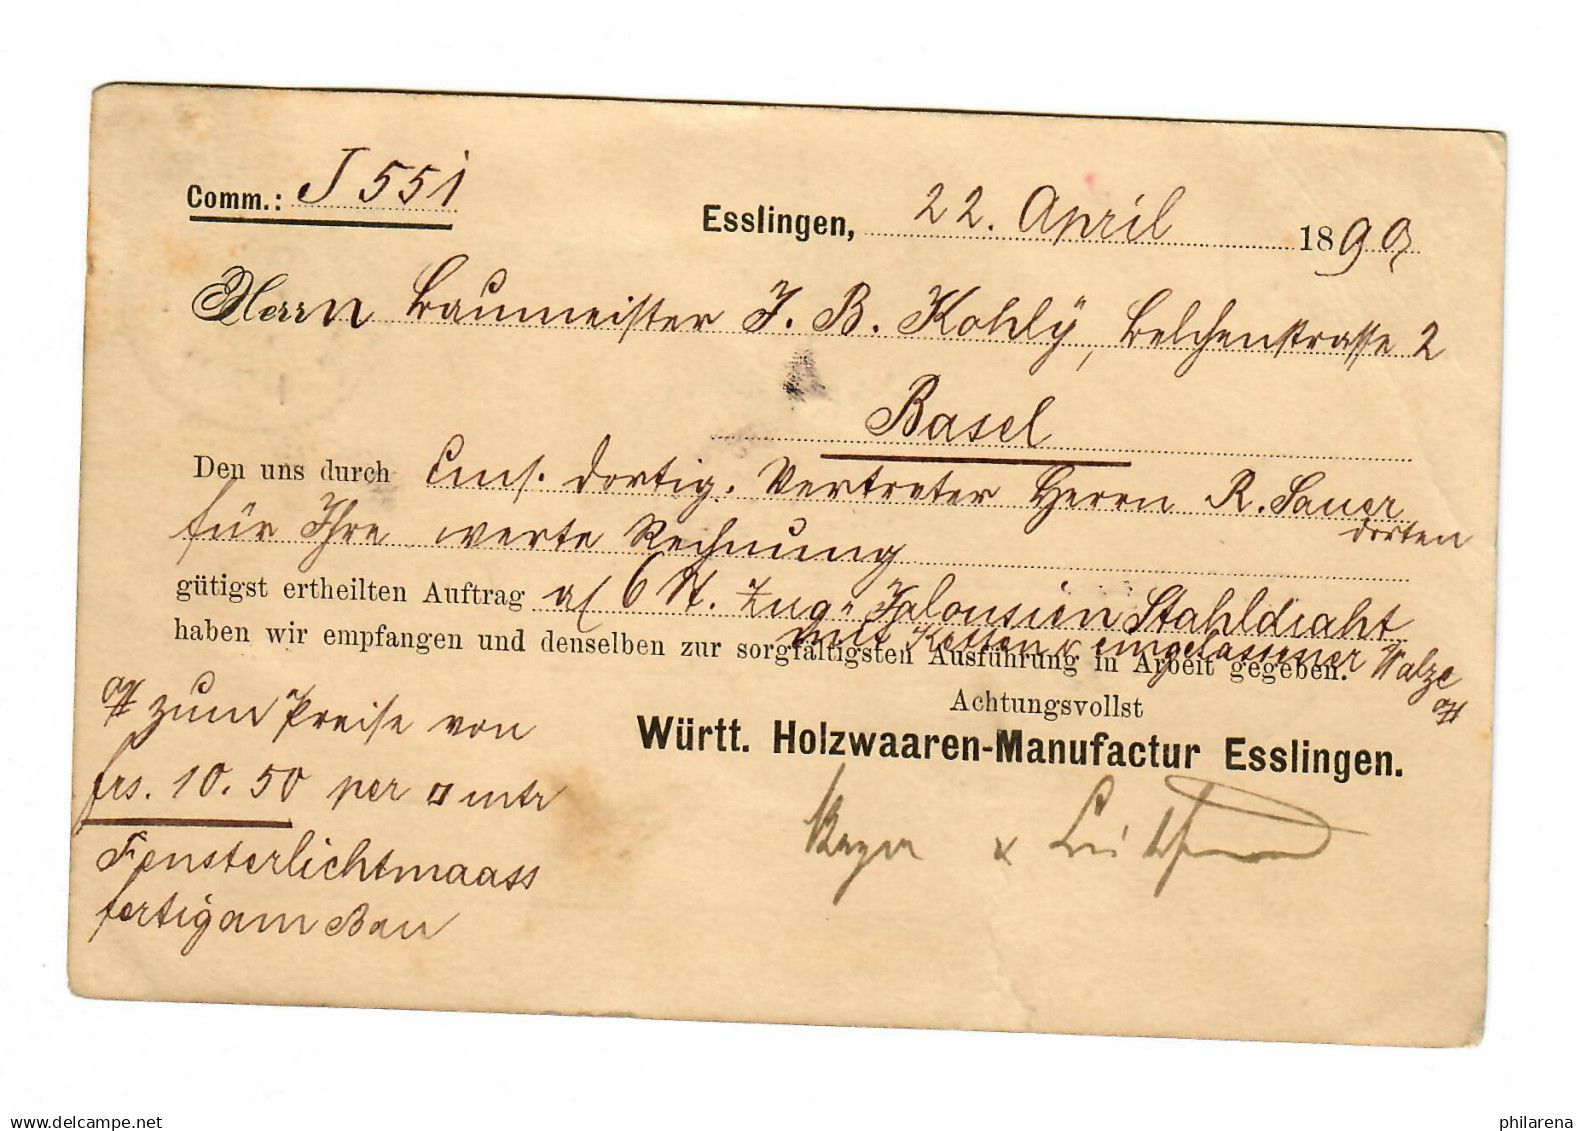 Comm.: J 551
Esslingen, 22. April 1890
Herrn Baumeister J. B. Kohly, Belchenstrasse 2
Basel
Den uns durch uns. dortig. Vertreter Herrn R. Sauer
für Ihre werte Rechnung dorten
gütigst ertheilten Auftrag a/ 6 St. Zug-Jalousien Stahldraht
mit Ketten & eingelassener Walze
haben wir empfangen und denselben zur sorgfältigsten Ausführung in Arbeit gegeben.
Achtungsvollst
Württ. Holzwaaren-Manufactur Esslingen.
zum Preise von
frs. 10.50 per □ mtr
Fensterlichtmaass
fertig am Bau
Bayer &
www.delcampe.net
philarena